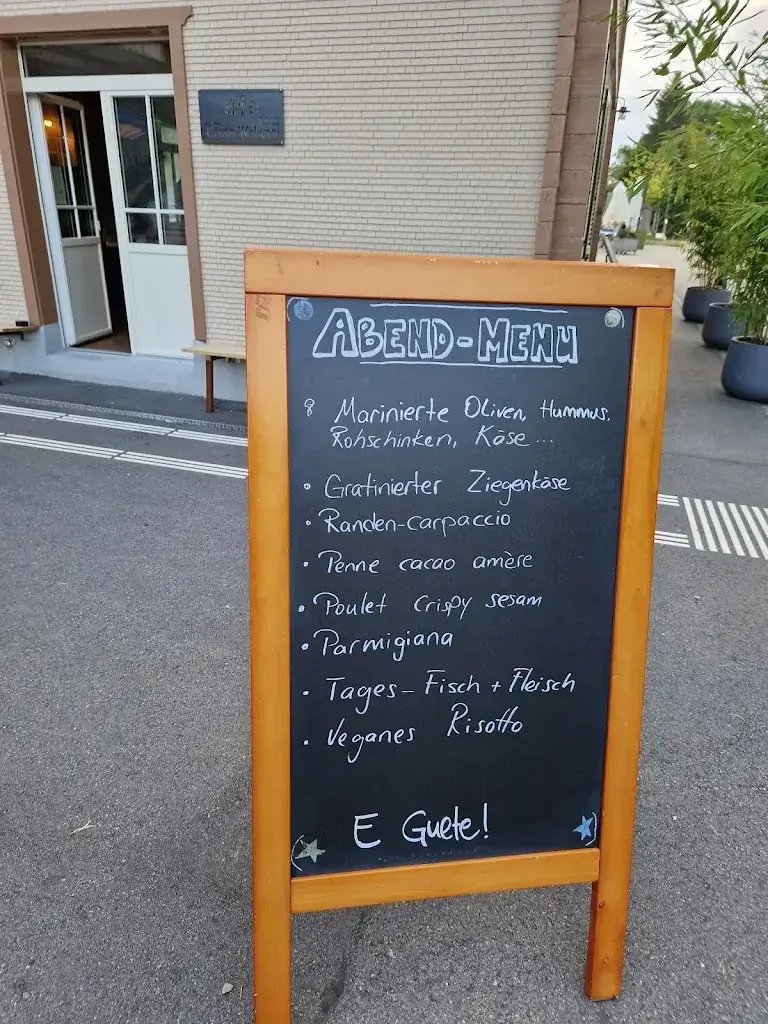 ABEND-MENU
8 Marinierte Oliven, Hummus,
Rohschinken, Käse ...
• Gratinierter Ziegenkäse
• Randen-carpaccio
• Penne cacao amère
• Poulet crispy sesam
• Parmigiana
• Tages-Fisch + Fleisch
• Veganes Risotto
E Guete!